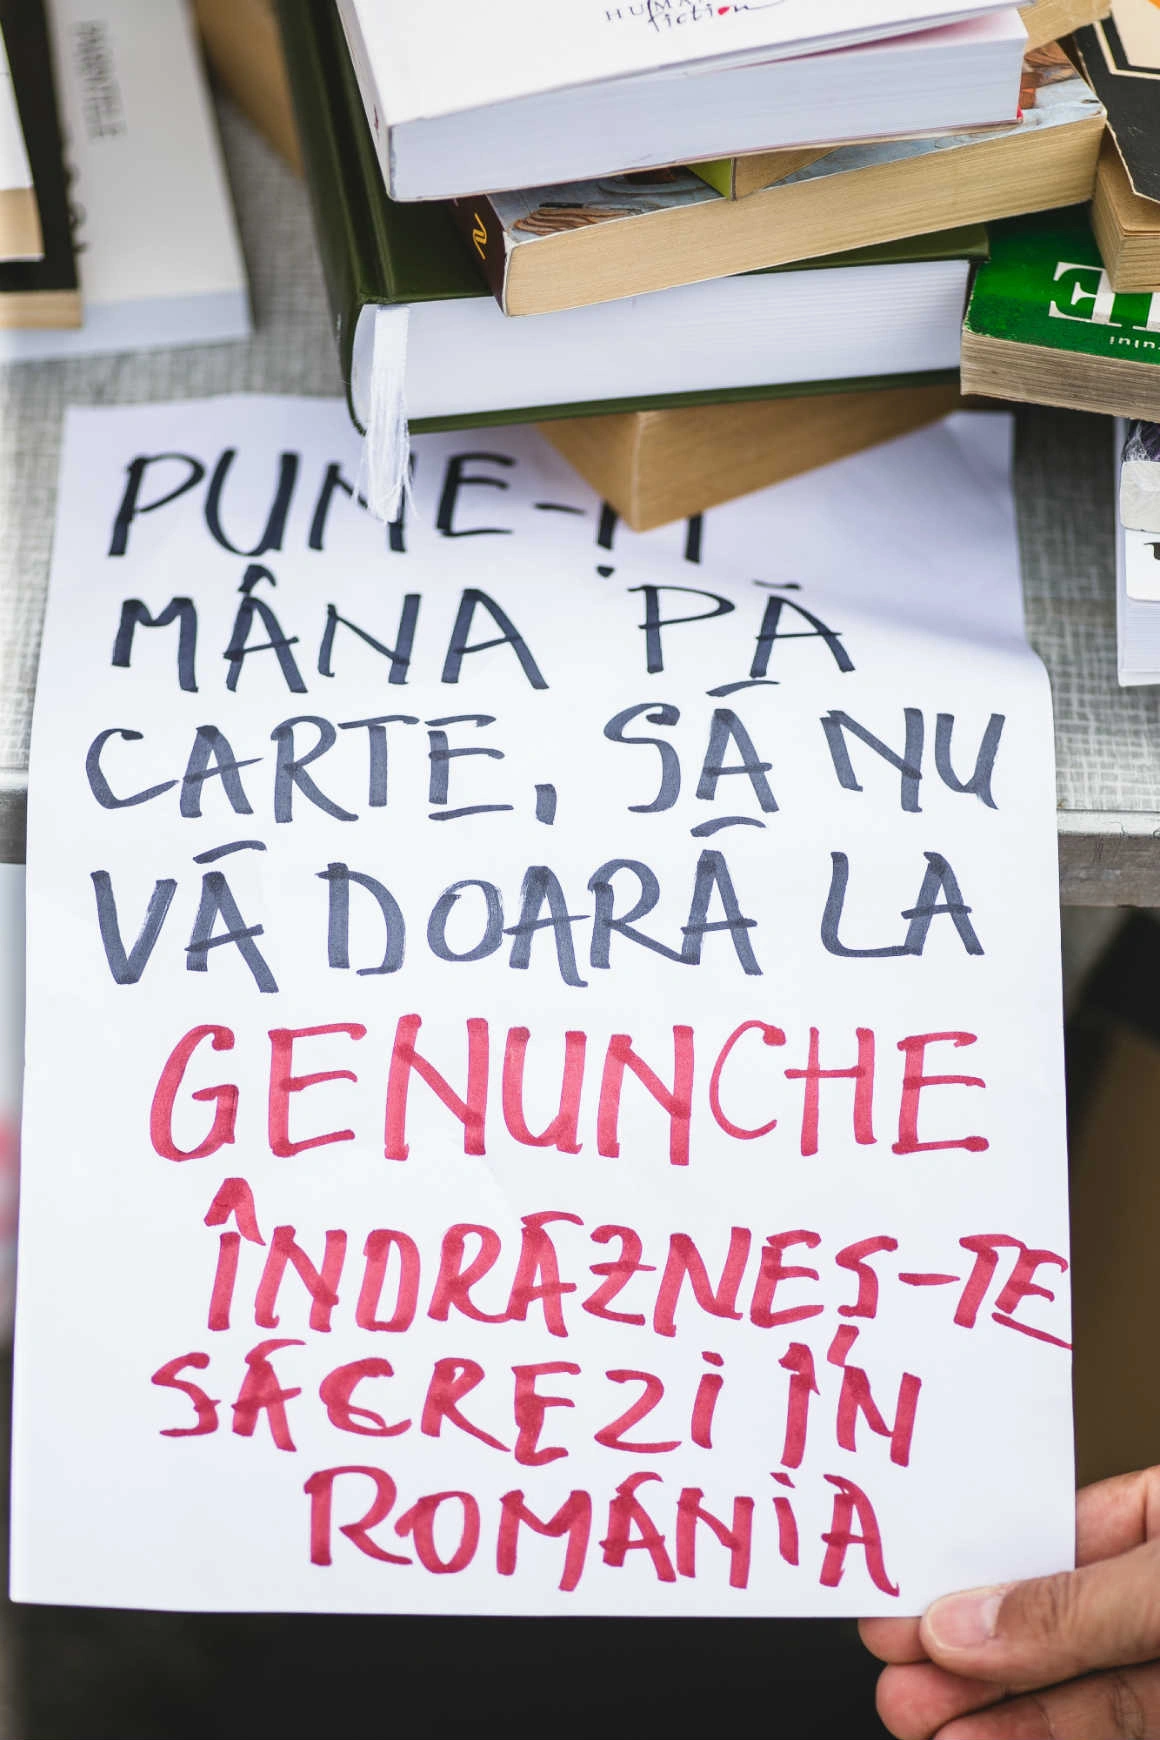 HUMAN
fiction
PUNE-ȚI
MÂNA PĂ
CARTE, SĂ NU
VĂ DOARĂ LA
GENUNCHE
ÎNDRĂZNEȘ-TE
SĂ CREZI ÎN
ROMÂNIA